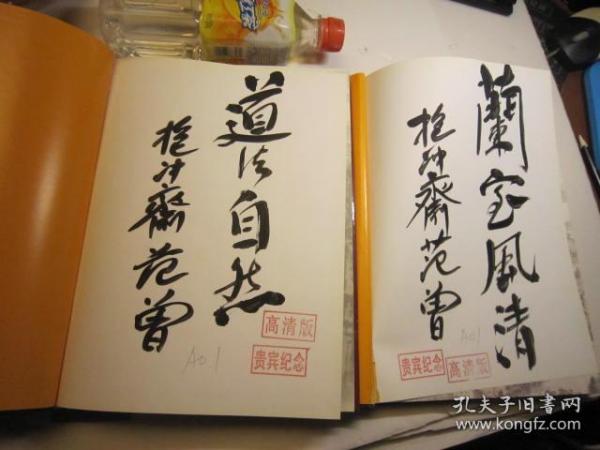 道法自然
抱冲斋范曾
高清版
贵宾纪念
A01
蘭室風清
抱冲齋范曾
A01
贵宾纪念
高清版
孔夫子旧书网
www.kongfz.com